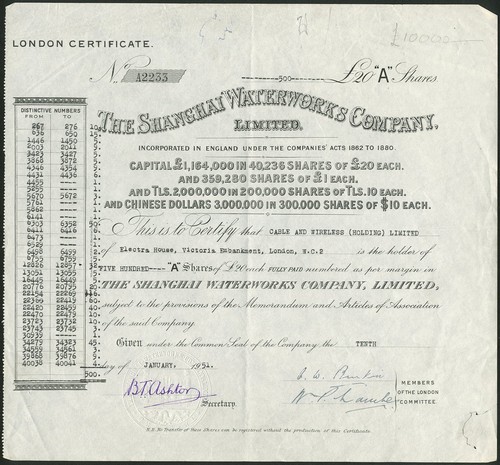 £10000
LONDON CERTIFICATE.
No. A2233 500 £20 "A" Shares
THE SHANGHAI WATERWORKS COMPANY,
LIMITED.
INCORPORATED IN ENGLAND UNDER THE COMPANIES' ACTS 1862 TO 1880.
CAPITAL £1,164,000 IN 40,236 SHARES OF £20 EACH.
AND 359,280 SHARES OF £1 EACH.
AND TLS. 2,000,000 IN 200,000 SHARES OF TLS. 10 EACH.
AND CHINESE DOLLARS 3,000,000 IN 300,000 SHARES OF $10 EACH.
DISTINCTIVE NUMBERS
FROM TO
267 276 10
636 650 15
1446 1450
2003 2041
3423 3427
3868 3872
4354
4431 4436
4455
5255
5670 5672
5761
5862
6141
6303 6352 50
6411 6416
6498 6499
6755 6759
12826 12857 32
13051 13055
16445 16449
20776 20790
22154 22269
22456 22459
22470
23727 23732
23743 23745
30939
34279 34323 45
34549 34553
39868 39876
40038 40041 4
500.
This is to Certify that CABLE AND WIRELESS (HOLDING) LIMITED
of Electra House, Victoria Embankment, London, W.C.2 is the holder of
FIVE HUNDRED---- "A" Shares of £20 each FULLY PAID numbered as per margin in
THE SHANGHAI WATERWORKS COMPANY, LIMITED,
subject to the provisions of the Memorandum and Articles of Association
of the said Company.
Given under the Common Seal of the Company the TENTH
day of JANUARY, 1951.
B.T. Ashton
Secretary.
MEMBERS
OF THE LONDON
COMMITTEE.
N.B. No Transfer of these Shares can be registered without the production of this Certificate.